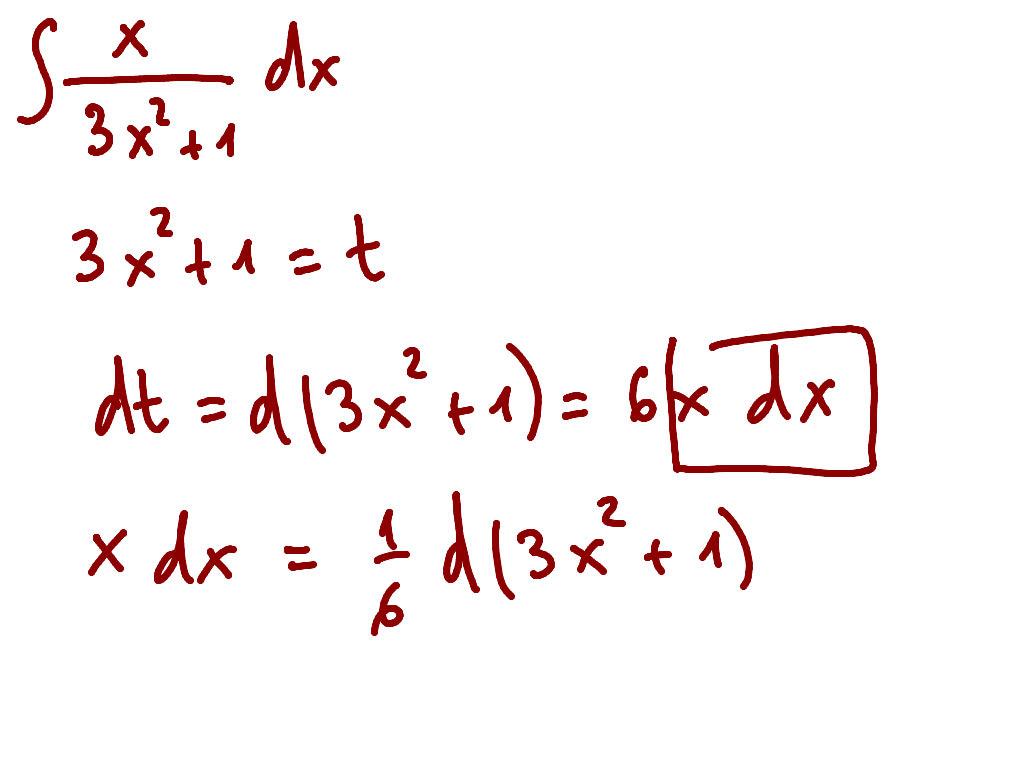 ∫ x / (3x² + 1) dx
3x² + 1 = t
dt = d(3x² + 1) = 6x dx
x dx = 1/6 d(3x² + 1)